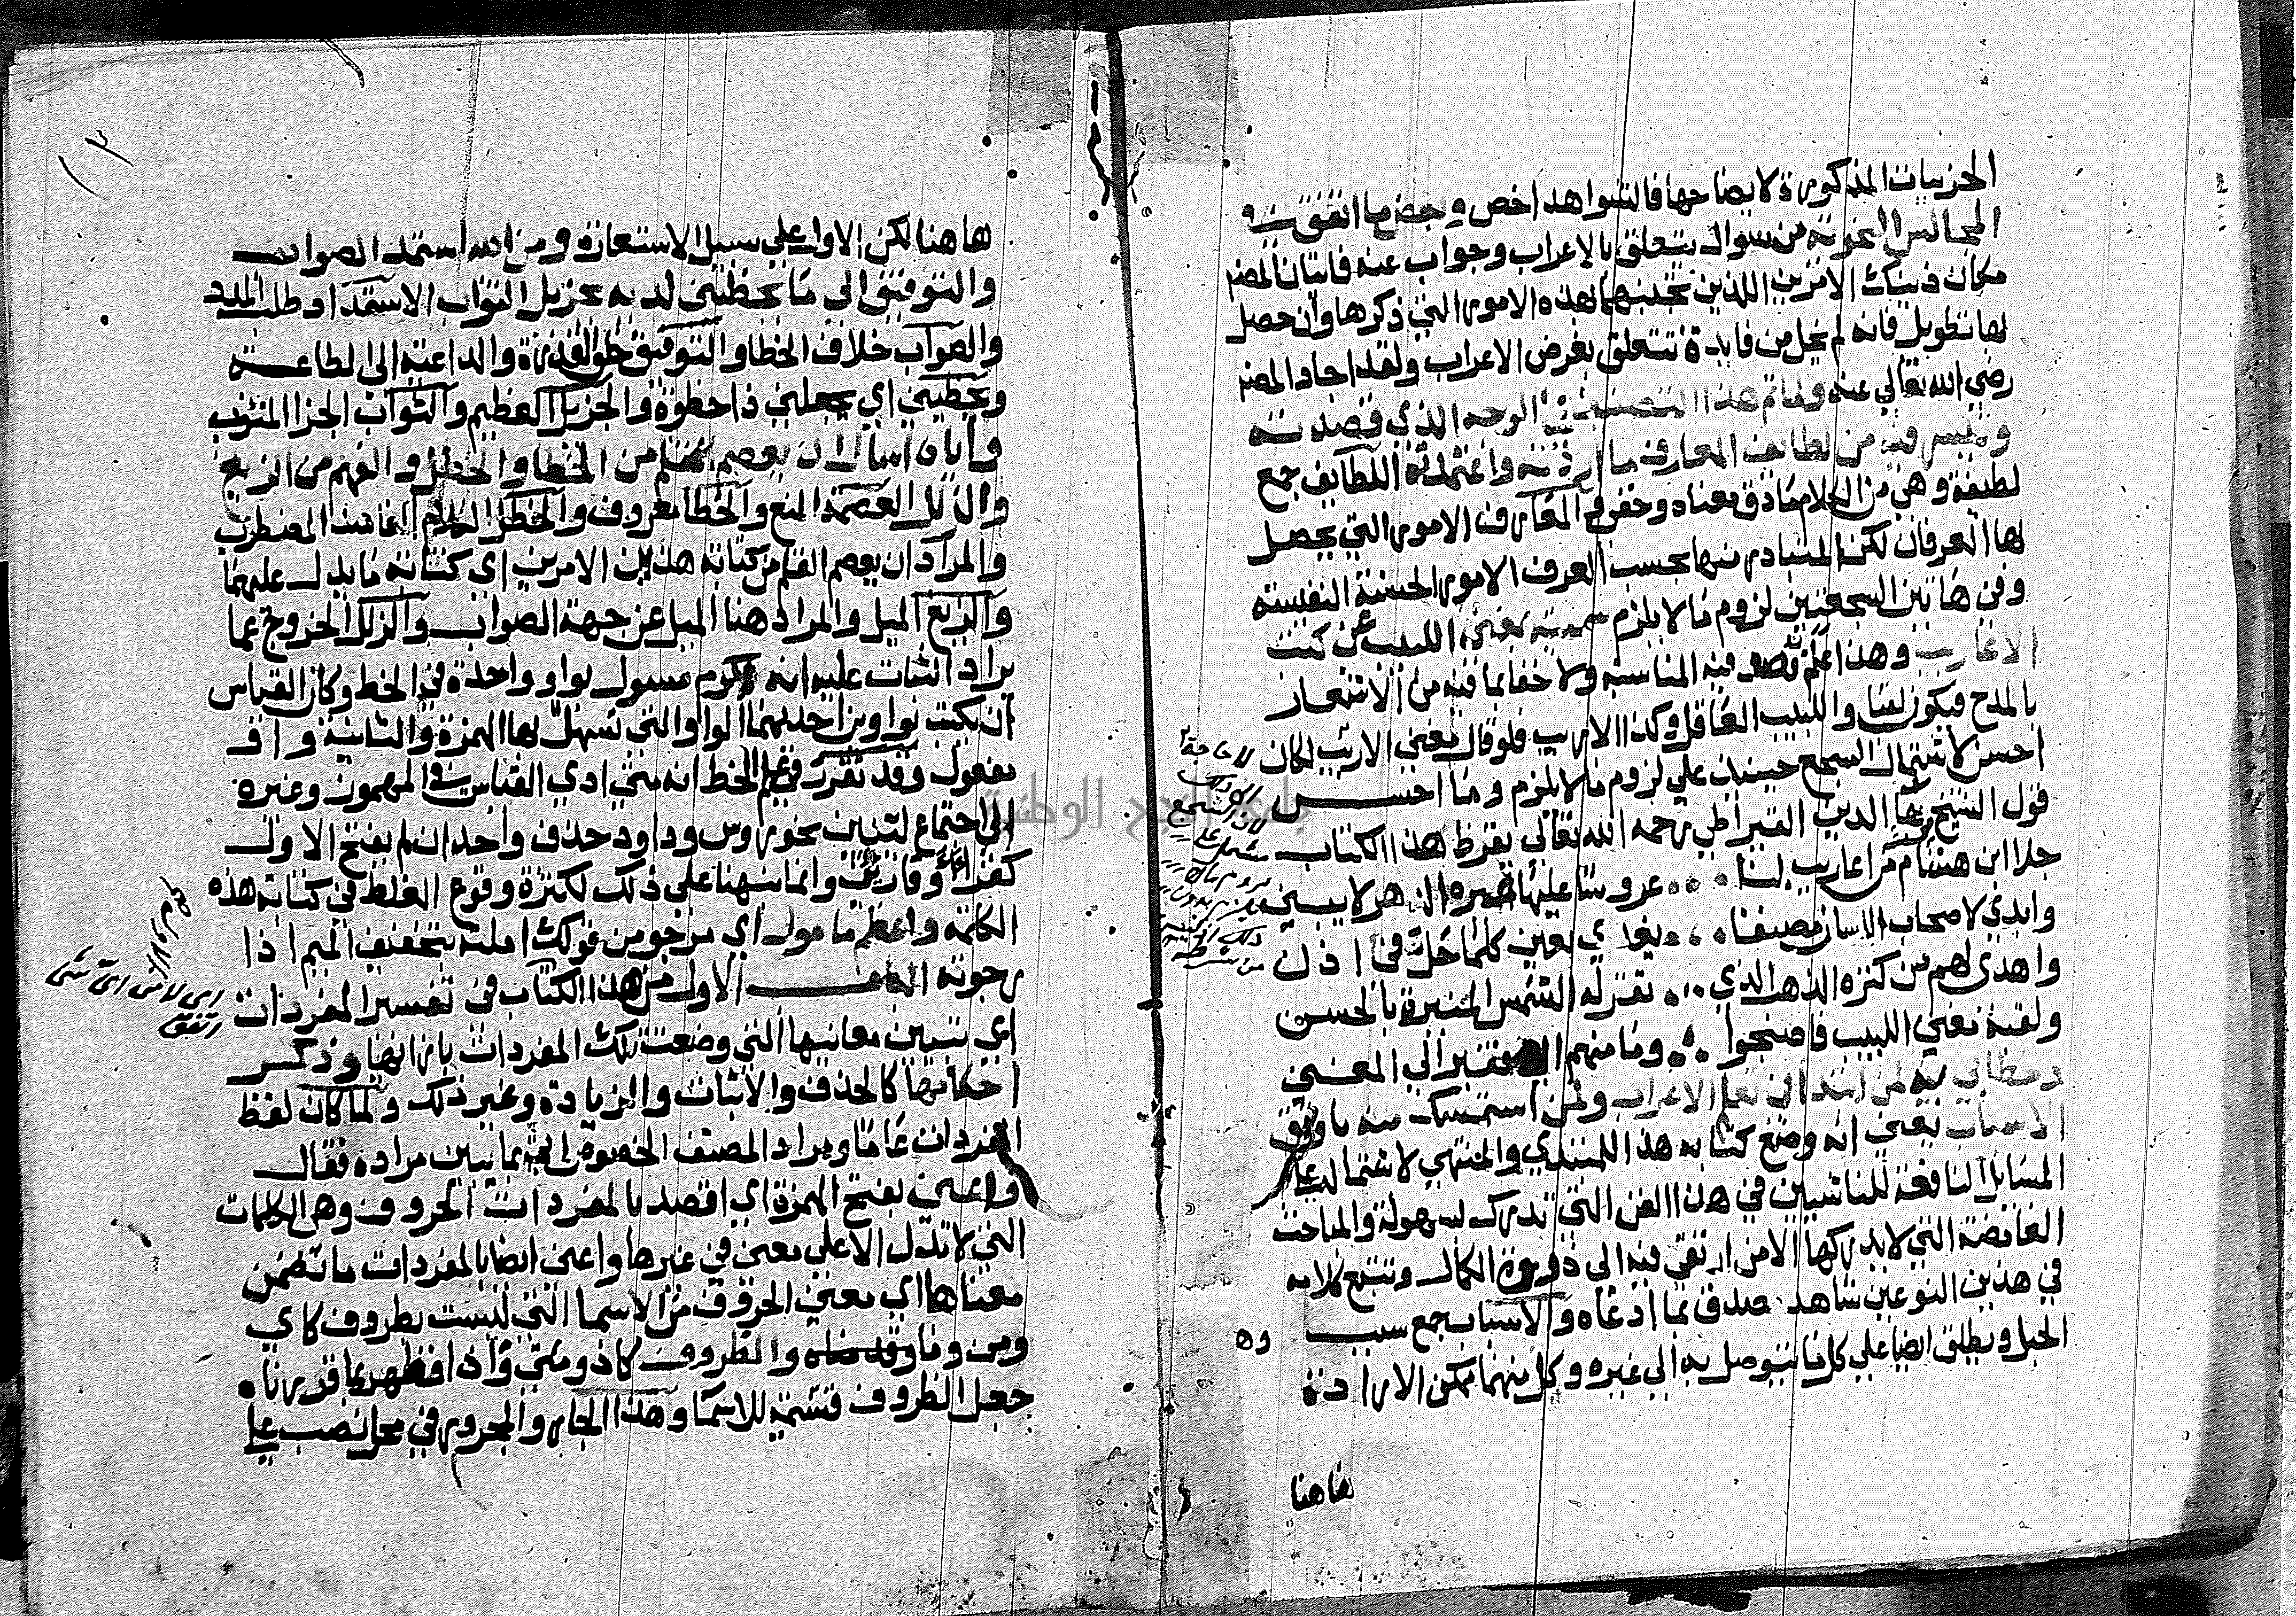 الجزييات المذكورة لايضاحها فالشواهد اخص وبعضها اتفق في
المجالس النحوية من سوال يتعلق بالاعراب وجواب عنه فاتيان المص
مكان ذينك الامرين اللذين تجنبهما بهذه الامور التي ذكرها وان حصل
بها تطويل فانه لم يخل من فايدة تتعلق بغرض الاعراب ولقد اجاد المص
رضي الله تعالي عنه ولما تم هذا التصنيف علي الوجه الذي قصدته
وتيسر فيه من لطايف المعارف ما اردته واعتمدته اللطايف جمع
لطيفة وهي من الكلام ما دق معناه وخفي والمعارف الامور التي يحصل
بها العرفان لكن المتبادر منها بحسب العرف الامور الحسنة النفيسة
وفي هاتين السجعتين لزوم ما لا يلزم سميته بمغني اللبيب عن كتب
الاعاريب وهذا علم قصد فيه المناسبة ولا خفا بما فيه من الاشعار
بالمدح فيكون لقبا واللبيب العاقل وكذا الاريب فلو قال مغني الاريب لكان
احسن لاشتمال السجع حينئذ علي لزوم ما لا يلزم وما احسن
قول الشيخ برهان الدين القيراطي رحمه الله تعالي يقرظ هذا الكتاب
جلا ابن هشام من اعاريب لنا ... عروسا عليها غيره الدهر لا يبني
وابدي لاصحاب اللسان مصنفا ... يغدي بعين كلما حل في اذن
واهدي لهم من كنزه الذهر الذي ... تقر له الشمس المنيرة بالحسن
ولقبه مغني اللبيب فاصبحوا ... وما منهم الا فقير الي المغني
وخطابي به لمن ابتدا في تعلم الاعراب ولمن استمسك منه باوثق
الاسباب يعني انه وضع كتابه هذا للمبتدي والمنتهي لاشتماله علي
المسايل النافعة للناشيين في هذا الفن التي تدرك بسهولة والمباحث
الغامضة التي لا يدركها الا من ارتقي فيه الي ذروة الكمال وتتبع كلامه
في هذين النوعين شاهد صدق بما ادعاه والاسباب جمع سبب وه
الحبل ويطلق ايضا علي كل ما يتوصل به الي غيره وكل منهما يمكن الارادة
هاهنا
هاهنا لكن الاول علي سبيل الاستعارة ومن الله استمد الصواب
والتوفيق الي ما يحظيني لديه بجزيل الثواب الاستمداد طلب المدد
والصواب خلاف الخطا والتوفيق خلق القدرة والداعية الي الطاعة
ويحظيني اي يجعلني ذا حظوة والجزيل العظيم والثواب الجزا المترتب
واياه اسال ان يعصم القلم من الخطا والخطل والفهم من الزيغ
والزلل العصمة المنع والخطا معروف والخطل الكلام الفاسد المضطرب
والمراد ان يعصم القلم من كتابة هذين الامرين اي كتابة ما يدل عليهما
والزيغ الميل والمراد هنا الميل عن جهة الصواب والزلل الخروج عما
يراد الثبات عليه انه اكرم مسول بواو واحدة في الخط وكان القياس
ان يكتب بواوين احديهما الواو التي تسهل بها الهمزة والثانية واو
مفعول وقد تقرر في علم الخط انه متي ادي القياس في المهموز وغيره
الي اجتماع لينين نحو روس وداود حذف واحد ان لم يفتح الاول
كقرا وقارئين وانما نبهنا علي ذلك لكثرة وقوع الغلط في كتابة هذه
الكلمة واعظم مامول اي مرجو من قولك املته بتخفيف الميم اذا
رجوته الباب الاول من هذا الكتاب في تفسير المفردات
اي تبيين معانيها التي وضعت تلك المفردات بازايها وذكر
احكامها كالحذف والاثبات والزيادة وغير ذلك ولما كان لفظ
المفردات عاما ومراد المصنف الخصوص اتبعه بما يبين مراده فقال
واعني بفتح الهمزة اي اقصد بالمفردات الحروف وهي الكلمات
التي لا تدل الا علي معني في غيرها واعني ايضا بالمفردات ما تضمن
معناها اي معني الحروف من الاسما التي ليست بظروف كاي
ومن وما والظروف كاذ ومتي واذا فظهر بما قدرنا
جعل الظروف قسمة للاسما وهذا الجار والمجرور في محل نصب علي